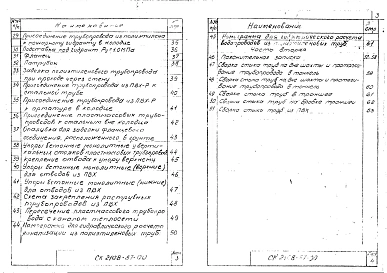 Наименование
29 Присоединение трубопровода из полиэтилена
к пожарному гидранту в колодце 35
30 Подставка под гидрант Ру=10МПа 36
31 Фланец 37
32 Патрубок 38
33 Заделка полиэтиленового трубопровода
при проходе через стену 39
34 Присоединение трубопровода из ПВХ-Р к
стальному трубе 40
35 Присоединение трубопровода из ПВХ-Р
к арматуре в колодце 41
36 Присоединение пластмассовых трубо-
проводов к стальным вне колодца 42
37 Опалубка для заделки фланцевого
соединения, расположенного в грунте 43
38 Упоры бетонные монолитные на верти-
кальных стояках пластмассовых трубопроводов 44
39 Крепление отвода к упору вверху 45
40 Упоры бетонные монолитные (верхние)
для отводов из ПВХ 46
41 Упоры бетонные монолитные (нижние)
для отводов из ПВХ 47
42 Схема закрепления раструбных
трубопроводов из ПВХ 48
43 Пересечение пластмассового трубопро-
вода с каналом теплосети 49
44 Номограмма для гидравлического расчета
канализации из полиэтиленовых труб 50
СК 2108-87-ПД
3
Наименование
45 Номограмма для гидравлического расчета
водопроводов из пластмассовых труб 51
Часть вторая
46 Пояснительная записка
47 Сборка стыка труб на дне шахты и протаски-
вание трубопровода в тоннель
48 Сборка стыка труб на дне шахты и протаски-
вание трубопровода в тоннеле
49 Сборка стыка труб в траншее
50 Сборка стыка труб на бровке траншеи
51 Сборка стыка труб из ПВХ
СК 2108-87-ПД
4